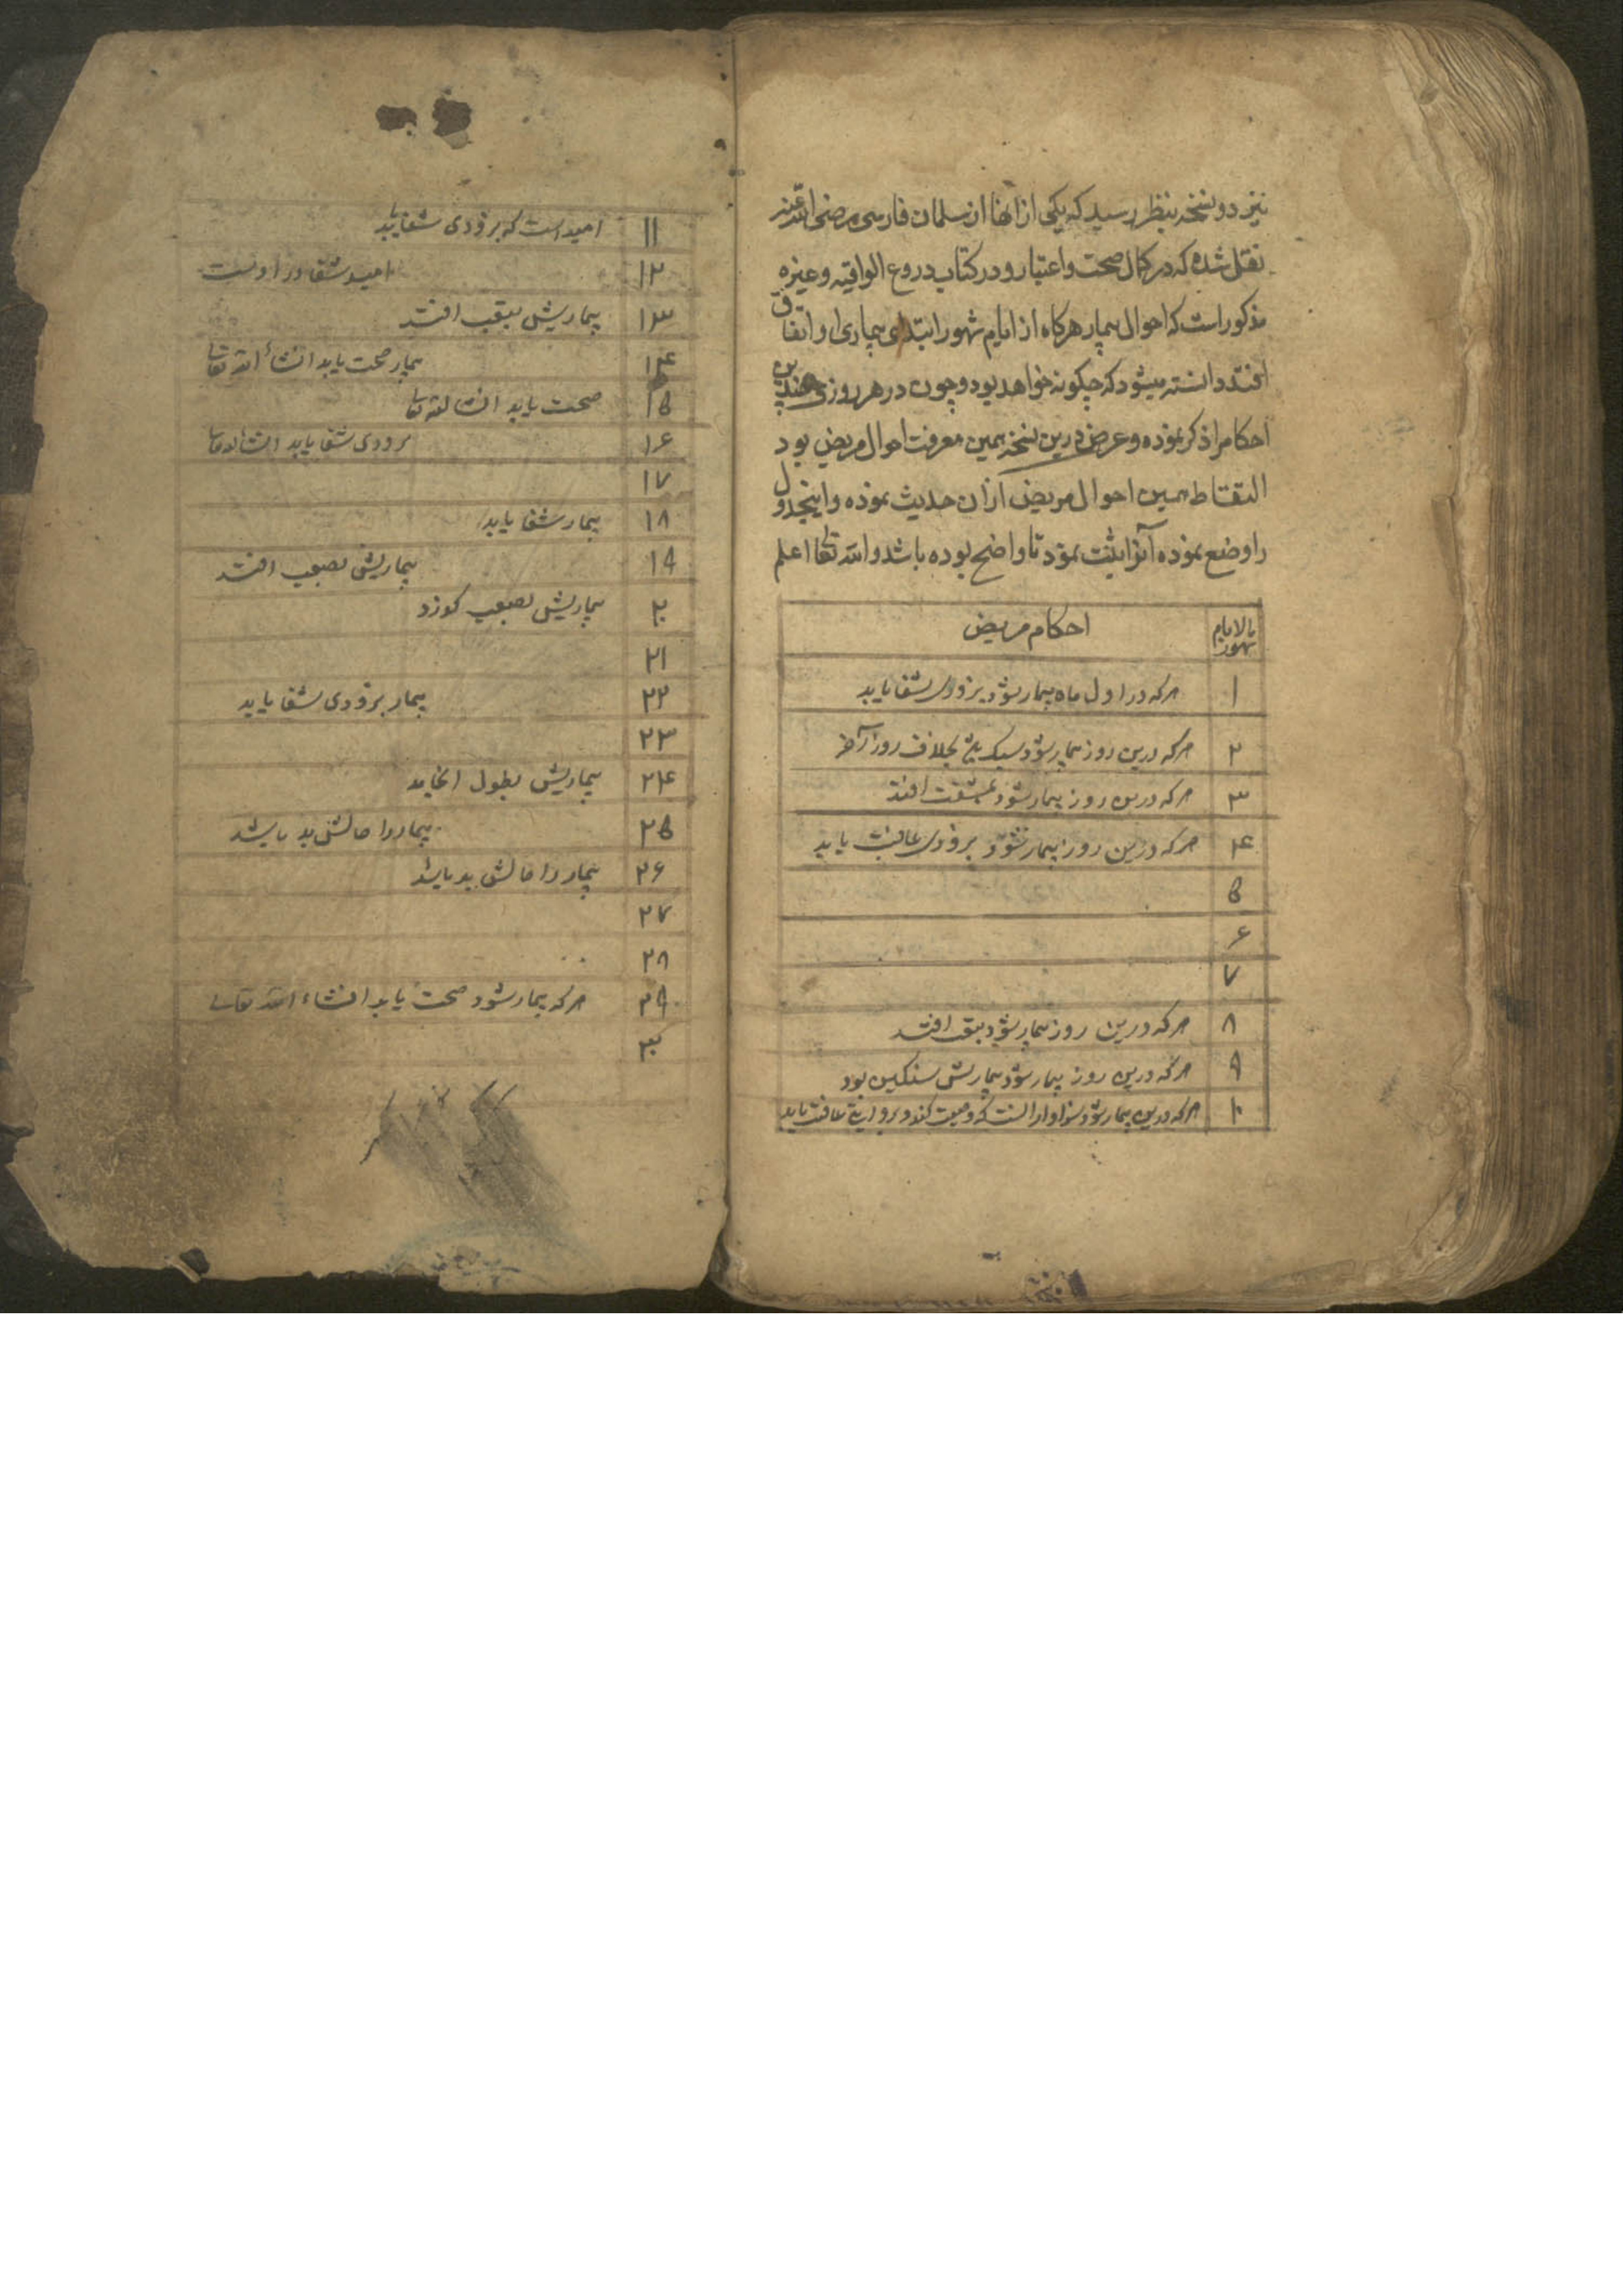 نیز دو نسخه بنظر رسید که یکی از انها از سلمان فارسی رضی الله عنه
نقل شده که در کمال صحت و اعتبار و در کتاب دروع الواقیه و غیره
مذکور است که احوال بیمار هرکاه از ایام شهور ابتدای بیماری او اتفاق
افتد دانسته میشود که چکونه خواهد بود و چون در هر روزی چندین
احکام را ذکر نموده و غرض درین نسخه همین معرفت احوال مریض بود
التقاط همین احوال مریض از ان حدیث نموده و اینجدول
را وضع نموده آنرا ثبت نمود تا واضح بوده باشد والله تعالی اعلم
ایام شهور احکام مریض
۱ هرکه در اول ماه بیمار شود بزودی شفا یابد
۲ هرکه درین روز بیمار شود سبک بخلاف روز آخر
۳ هرکه درین روز بیمار شود بمشقت افتد
۴ هرکه درین روز بیمار شود بزودی عافیت یابد
۵
۶
۷
۸ هرکه درین روز بیمار شود بتعب افتد
۹ هرکه درین روز بیمار شود بیماریش سنکین بود
۱۰ هرکه درین بیمار شود سزاوار انست که وصیت کند و بروایتی عافیت یابد
۱۱ امید است که بزودی شفا یابد
۱۲ امید شفا در او نیست
۱۳ بیماریش بتعب افتد
۱۴ بیمار صحت یابد انشاء الله تعالی
۱۵ صحت یابد انشا الله تعالی
۱۶ بزودی شفا یابد انشا الله تعالی
۱۷
۱۸ بیمار شفا یابد
۱۹ بیماریش بصعب افتد
۲۰ بیماریش بصعب کذرد
۲۱
۲۲ بیمار بزودی شفا یابد
۲۳
۲۴ بیماریش بطول انجامد
۲۵ بیمار را حالش بد باشد
۲۶ بیمار را حالش بد باشد
۲۷
۲۸
۲۹ هرکه بیمار شود صحت یابد انشاء الله تعالی
۳۰